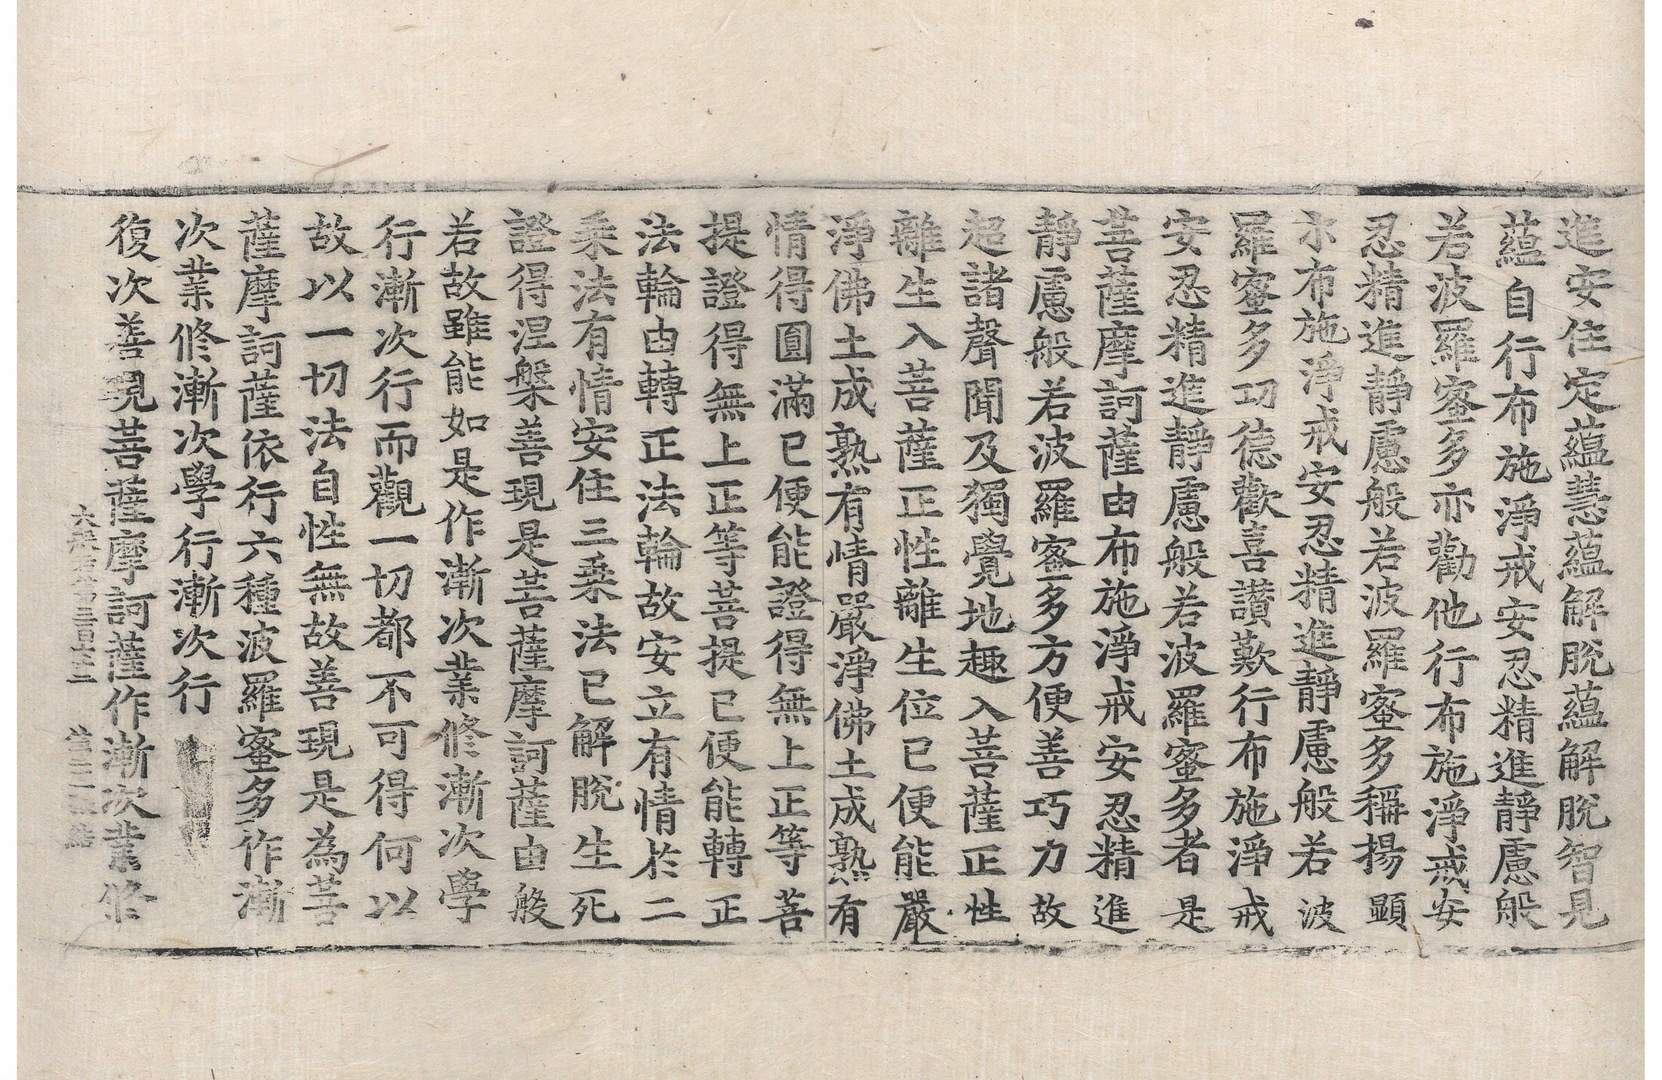 進安住定蘊慧蘊解脫蘊解脫智見
蘊自行布施淨戒安忍精進靜慮般
若波羅蜜多亦勸他行布施淨戒安
忍精進靜慮般若波羅蜜多稱揚顯
示布施淨戒安忍精進靜慮般若波
羅蜜多功德歡喜讚歎行布施淨戒
安忍精進靜慮般若波羅蜜多者是
菩薩摩訶薩由布施淨戒安忍精進
靜慮般若波羅蜜多方便善巧力故
超諸聲聞及獨覺地趣入菩薩正性
離生入菩薩正性離生位已便能嚴
淨佛土成熟有情嚴淨佛土成熟有
情得圓滿已便能證得無上正等菩
提證得無上正等菩提已便能轉正
法輪由轉正法輪故安立有情於三
乘法有情安住三乘法已解脫生死
證得涅槃善現是菩薩摩訶薩由般
若故雖能如是作漸次業修漸次學
行漸次行而觀一切都不可得何以
故以一切法自性無故善現是為菩
薩摩訶薩依行六種波羅蜜多作漸
次業修漸次學行漸次行
復次善現菩薩摩訶薩作漸次業修